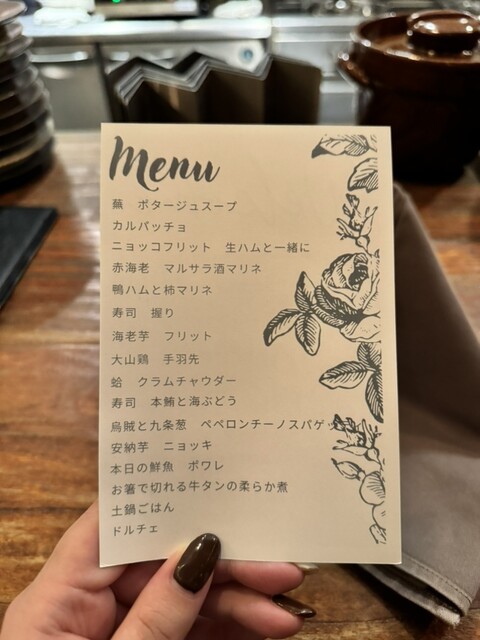 Menu
蕪　ポタージュスープ
カルパッチョ
ニョッコフリット　生ハムと一緒に
赤海老　マルサラ酒マリネ
鴨ハムと柿マリネ
寿司　握り
海老芋　フリット
大山鶏　手羽先
蛤　クラムチャウダー
寿司　本鮪と海ぶどう
烏賊と九条葱　ペペロンチーノスパゲッ
安納芋　ニョッキ
本日の鮮魚　ポワレ
お箸で切れる牛タンの柔らか煮
土鍋ごはん
ドルチェ